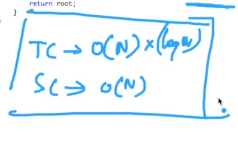 return root;
}
TC → O(N) × (log N)
SC → O(N)